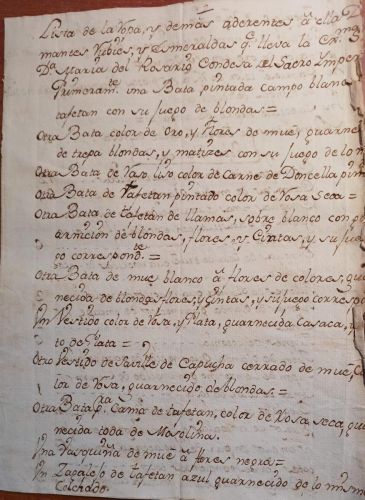 Lista de la Ropa, y demás aderentes á ella, D
mantes Rubies, y Esmeraldas q.e lleva la Ex.ma
D.a Maria del Rosario Condesa del Sacro Imper
Primeram.te una Bata pintada campo blanc
tafetan con su juego de blondas=
Otra Bata color de Oro, y flores de mue, guarne
de trepa blondas, y matizes con su juego de lo m
Otra Bata de raso liso color de Carne de Doncella pin
Otra Bata de tafetan pintado color de Rosa seca=
Otra Bata de tafetan de llamas, sobre blanco con
arnicion de blondas, flores, y Cintas, y su jue
go correspond.te=
Otra Bata de mue blanco á flores de colores, gua
necida de blondas flores, y Cintas, y su juego correspo
Un Vestido color de Rosa, y Plata, guarnecida Casaca, y
to de Plata=
Otro Vestido de Capucha cerrado de mue, Co
lor de Rosa, guarnecido de blondas.=
Otra Bata p.ra Cama de tafetan, color de Rosa seca, gua
necida toda de Mosolina.
Una Vasquiña de mue á flores negra=
Un Zagalejo de tafetan azul guarnecido de lo mism
Colchado.